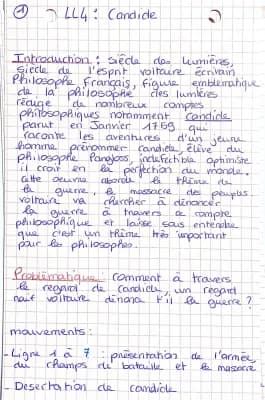 ① LL4 : Candide
Introduction : siècle des lumières,
siècle de l'esprit voltaire écrivain
Philosophe Français, figure emblématique
de la philosophie des lumières
rédige de nombreux comptes
philosophiques notamment candide
parut en Janvier 1759 qui
raconte les aventures d'un jeune
homme prénommer candide élève du
philosophe Pangloss, indéfectible optimiste
il croit en la perfection du monde.
Cette oeuvre aborde le thème de
la guerre, le massacre des peuples
voltaire va chercher à dénoncer
la guerre à travers ce compte
philosophique et laisse sous entendre
que c'est un thème très important
pour les philosophes.
Problématique : comment à travers
le regard de candide, un regard
naïf voltaire dénonce t'il la guerre ?
mouvements :
- Ligne 1 à 7 : présentation de l'armée
du champs de bataille et le massacre
- Desertation de candide